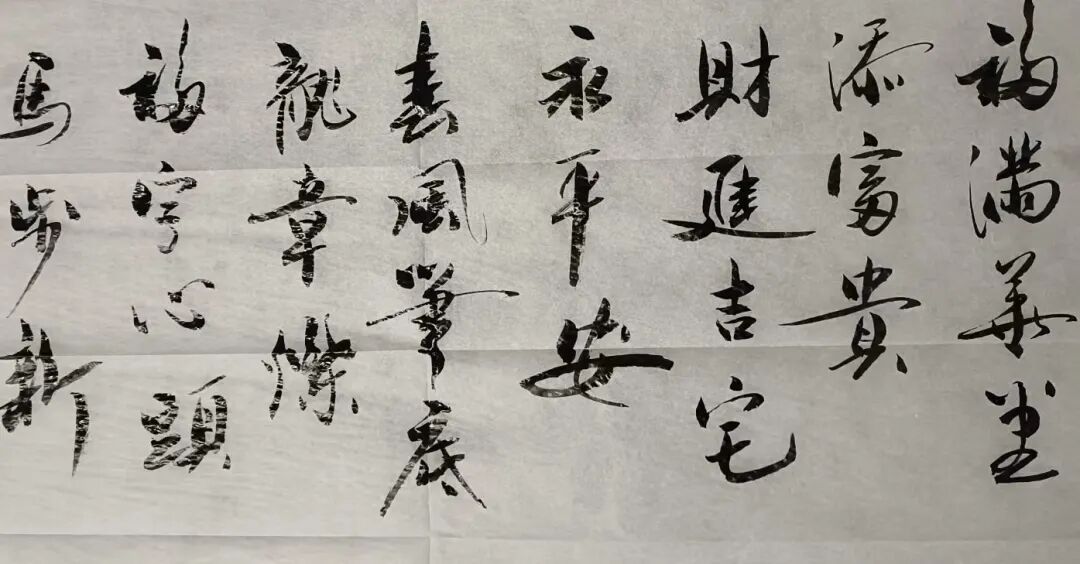 福满華堂
添富貴
財進吉宅
永平安
春風筆底
龍章燦
福字心頭
馬步新